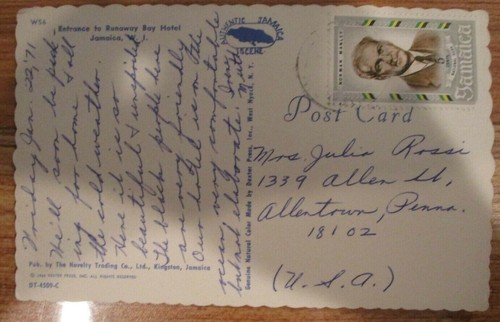 W56
Entrance to Runaway Bay Hotel
Jamaica, W. I.
AUTHENTIC JAMAICA
SCENE
Jamaica
Post Card
Friday Jan. 22 '71
We'll soon be pack-
ing for home & all
the cold weather
Here it is so
beautiful & unspoiled
The black people here
are very friendly
Our hotel is on the
ocean, very comfortable
but not elaborate.
Mrs. Julia Rossi
1339 Allen St,
Allentown, Penna.
18102
(U.S.A.)
Genuine Natural Color Made by Dexter Press, Inc., West Nyack, N. Y.
Pub. by The Novelty Trading Co., Ltd., Kingston, Jamaica
DT-4580-C